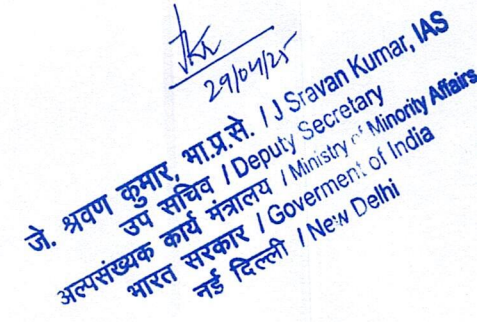 29/04/25
जे. श्रवण कुमार, भा.प्र.से. / J Sravan Kumar, IAS
उप सचिव / Deputy Secretary
अल्पसंख्यक कार्य मंत्रालय / Ministry of Minority Affairs
भारत सरकार / Goverment of India
नई दिल्ली / New Delhi